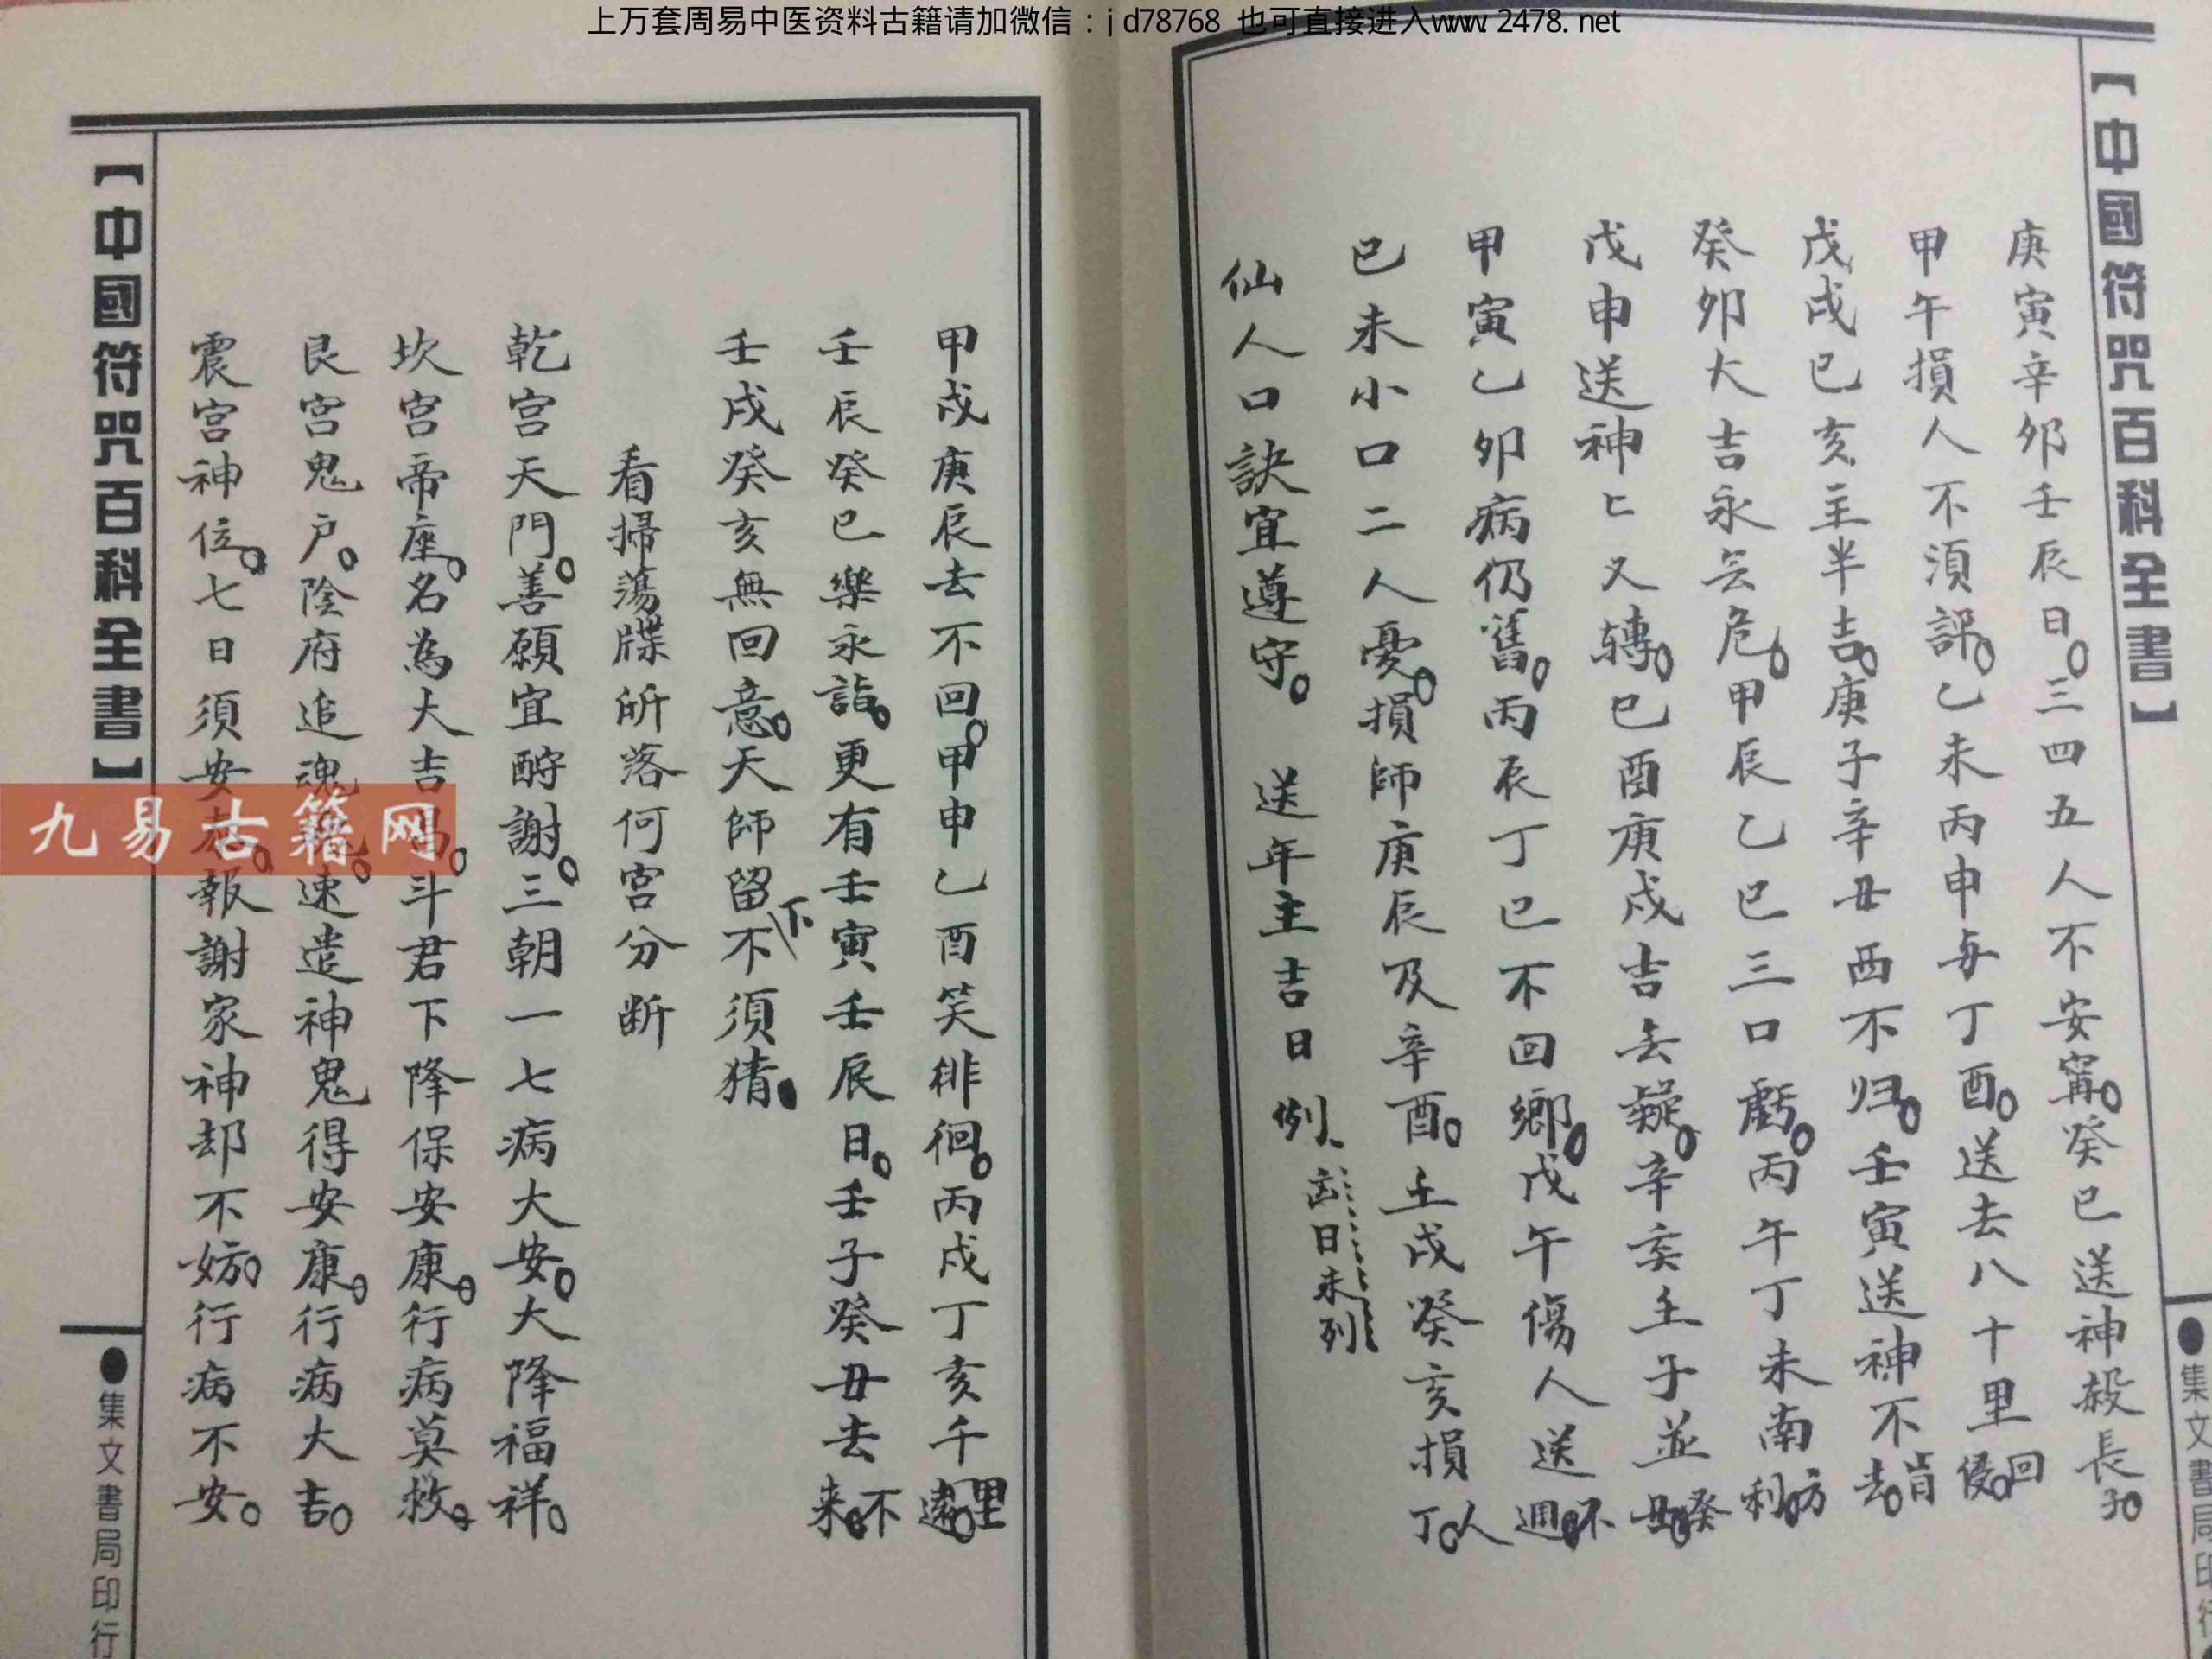 上万套周易中医资料古籍请加微信：jd78768 也可直接进入www.2478.net
【中國符咒百科全書】
庚寅辛卯壬辰日。三四五人不安甯。癸巳送神殺長子。
甲午損人不須評。乙未丙申与丁酉。送去八十里回侵。
戊戌巳亥主半吉。庚子辛丑西不归。壬寅送神不肯去。
癸卯大吉永无危。甲辰乙巳三口虧。丙午丁未南方利。
戊申送神匕又轉。巳酉庚戌吉无疑。辛亥壬子並癸丑。
甲寅乙卯病仍舊。丙辰丁巳不回鄉。戊午傷人送不週。
巳未小口二人憂。損師庚辰及辛酉。壬戌癸亥損人丁。
仙人口訣宜遵守。 送年主吉日例、
日未列
集文書局印行
甲戌庚辰去不回。甲申乙酉笑徘徊。丙戌丁亥千里遠。
壬辰癸巳樂永詣。更有壬寅壬辰日。壬子癸丑去不来。
壬戌癸亥無回意。天師留下不須猜。
看掃蕩牒所落何宮分断
乾宮天門。善願宜酧謝。三朝一七病大安。大降福祥。
坎宮帝座。名為大吉昌。斗君下降保安康。行病莫救。
艮宮鬼户。陰府追魂。速遣神鬼得安康。行病大吉。
震宮神位。七日須安。報謝家神却不妨。行病不安。
【中國符咒百科全書】
集文書局印行
九易古籍网